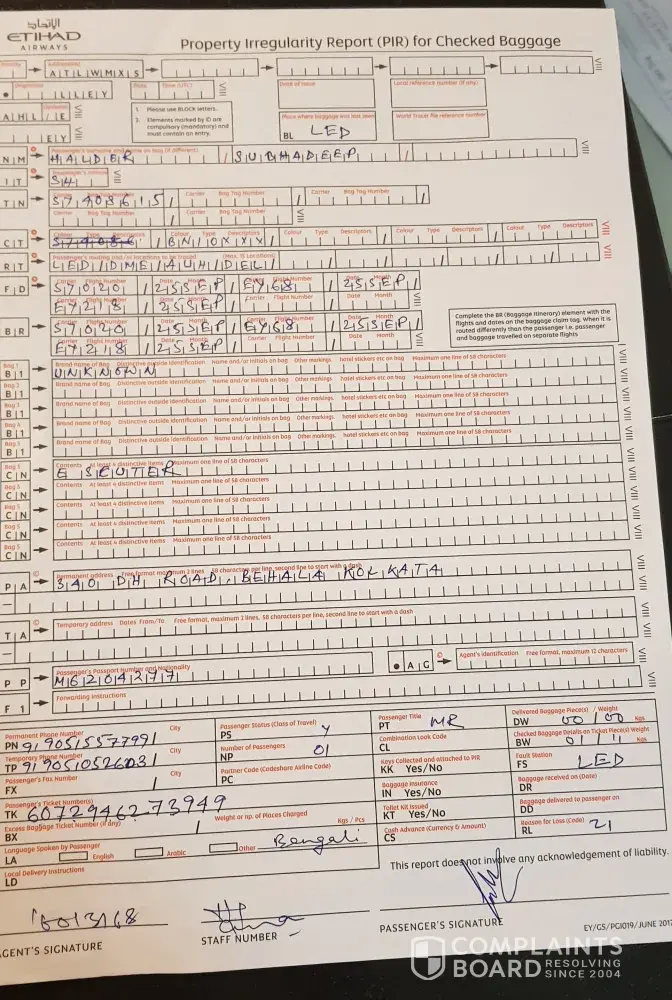 الإتحاد
ETIHAD
AIRWAYS
Property Irregularity Report (PIR) for Checked Baggage
A T L W M X S
L L E Y
Date of Issue
Local reference number (if any)
1. Please use BLOCK letters.
2. Elements marked by ID are compulsory (mandatory) and must contain an entry.
A H L / I E
Place where baggage was last seen
World Tracer file reference number
E Y
BL LED
NM HALDER / SUBHADEEP
IT S4
Carrier Bag Tag Number Carrier Bag Tag Number Carrier Bag Tag Number
TN
Carrier Bag Tag Number Carrier Bag Tag Number
Colour Type Descriptors Colour Type Descriptors Colour Type Descriptors
CIT BN10XXX
(Max. 15 Locations)
RIT LED/DME/AUH/DEL
FD S7020 / 25SEP / EY68 / 25SEP
EY218 / 25SEP
BR S7020 / 25SEP / EY68 / 25SEP
EY218 / 25SEP
Complete the BR (Baggage Itinerary) element with the flights and dates on the baggage claim tag. When it is routed differently than the passenger i.e. passenger and baggage travelled on separate flights
Brand name of Bag Distinctive outside identification Name and/or initials on bag Other markings hotel stickers etc on bag Maximum one line of 58 characters
BI1 UNKNOWN
Brand name of Bag Distinctive outside identification Name and/or initials on bag Other markings hotel stickers etc on bag Maximum one line of 58 characters
BI1
Brand name of Bag Distinctive outside identification Name and/or initials on bag Other markings hotel stickers etc on bag Maximum one line of 58 characters
BI1
Brand name of Bag Distinctive outside identification Name and/or initials on bag Other markings hotel stickers etc on bag Maximum one line of 58 characters
BI1
Brand name of Bag Distinctive outside identification Name and/or initials on bag Other markings hotel stickers etc on bag Maximum one line of 58 characters
BI1
Contents At least 4 distinctive items Maximum one line of 58 characters
CN E SCUTER
Contents At least 4 distinctive items Maximum one line of 58 characters
CN
Contents At least 4 distinctive items Maximum one line of 58 characters
CN
Contents At least 4 distinctive items Maximum one line of 58 characters
CN
Contents At least 4 distinctive items Maximum one line of 58 characters
CN
Permanent address Free format, maximum 2 lines 58 characters per line, second line to start with a dash
PA 340 DH ROAD, BEHALA KOLKATA
Temporary address Dates From/To Free format, maximum 2 lines, 58 characters per line, second line to start with a dash
TA
Passenger's Passport Number and Nationality
PP M6204277
AG Agent's identification Free format, maximum 12 characters
Forwarding Instructions
FI
Permanent Phone Number City
PN 919051557799
Temporary Phone Number City
TP
Passenger's Fax Number City
FX
Passenger's Ticket Number(s)
TK 6072946273949
Excess Baggage Ticket Number (if any) Weight or np. of Places Charged Kgs / Pcs
BX
Language Spoken by Passenger
LA English Arabic Other Bengali
Local Delivery Instructions
LD
Passenger Status (Class of Travel)
PS Y
Number of Passengers
NP 01
Partner Code (Codeshare Airline Code)
PC
Passenger Title
PT MR
Combination Lock Code
CL
Keys Collected and attached to PIR
KK Yes/No
Baggage Insurance
IN Yes/No
Toilet Kit Issued
KT Yes/No
Cash Advance (Currency & Amount)
CS
Delivered Baggage Piece(s) / Weight Kgs
DW 00/00
Checked Baggage Details on Ticket Piece(s) Weight Kgs
BW 01/11
Fault Station
FS LED
Baggage received on (Date)
DR
Baggage delivered to passenger on
DD
Reason for Loss (Code)
RL 21
This report does not involve any acknowledgement of liability.
AGENT'S SIGNATURE
STAFF NUMBER
PASSENGER'S SIGNATURE
EY/GS/PGI019/JUNE 2017
COMPLAINTS
BOARD RESOLVING SINCE 2004